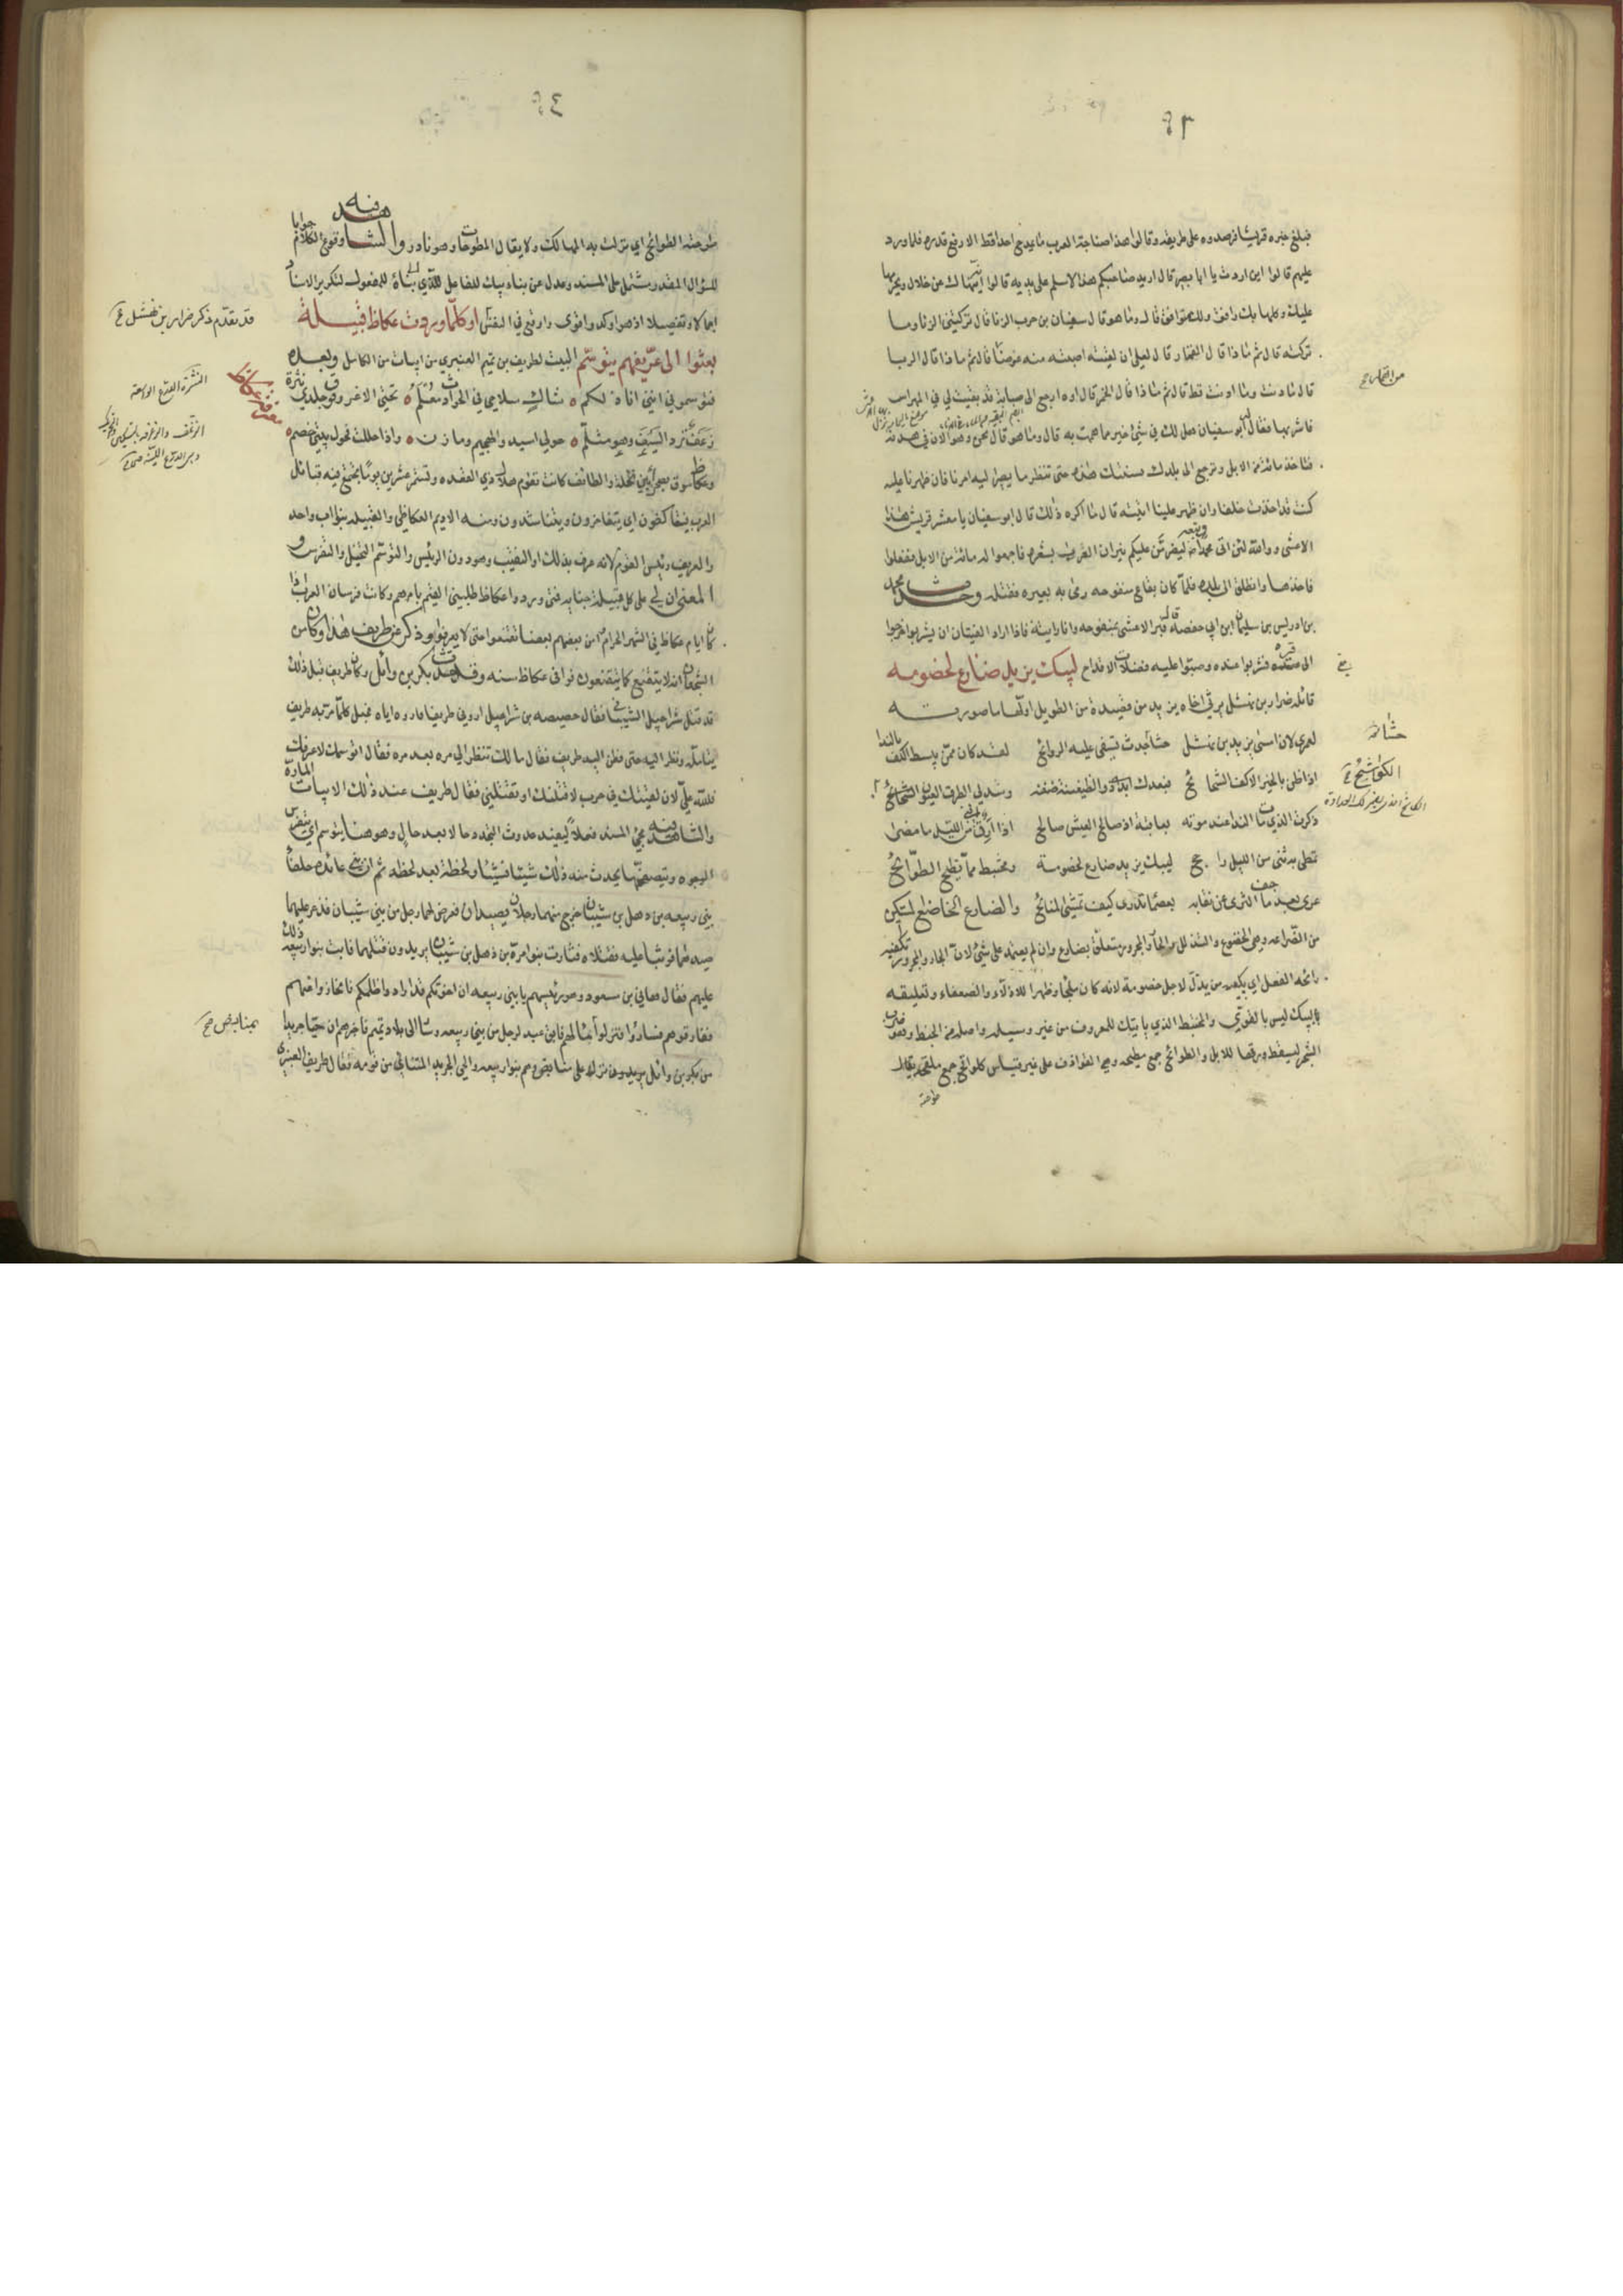 فبلغ خبره قريشا فرصدوه على طريقه وقالوا هذا صناجة العرب ما يمدح احدا قط الا رفع قدره فلما ورد
عليهم قالوا اين اردت يا ابا بصير قال اريد صاحبكم هذا لاسلم على يديه قالوا انه ينهاك عن خلال ويحرمها
عليك وكلها بك رافق ولك موافق قال وما هو قال سفيان بن حرب الزنا قال تركني الزنا وما
تركته قال ثم ماذا قال القمار قال لعلي ان لقيته اصبت منه عوضا قال ثم ماذا قال الربا
قال ما دنت وما ادنت قط قال ثم ماذا قال الخمر قال اوه ارجع الى صبابة قد بقيت لي في المهراس
فاشربها فقال له ابو سفيان هل لك في شئ خير مما هممت به قال وما هو قال نحن وهو الان في هدنة
فتاخذ مائة من الابل وترجع الى بلدك سنتك هذه حتى تنظر ما يصير اليه امرنا فان ظهرنا عليه
كنت قد اخذت خلفا وان ظهر علينا اتيته قال ما اكره ذلك قال ابو سفيان يا معشر قريش هذا
الاعشى ووالله لئن اتى محمدا وتبعه ليضرمن عليكم نيران العرب بشعره فاجمعوا له مائة من الابل ففعلوا
فاخذها وانطلق الى بلده فلما كان بقاع منفوحه رمى به بعيره فقتله وحدث محمد
بن ادريس بن سليمان ابن ابي حفصه قال قبر الاعشى بمنفوحه وانا رايته فاذا اراد الفتيان ان يشربوا خرجوا
الى قبره فشربوا عنده وصبوا عليه فضلات الاقداح ليبك يزيد ضارع لخصومه
قائله ضرار بن نهشل يرثي اخاه يزيد من قصيدة من الطويل اولها ما صورته
لعمري لان امسى يزيد بن نهشل حشا جدث تسفى عليه الروائح لقد كان ممن يبسط الكف بالندا
اذا ظن بالخير الاكف الشحائح
ذكرت الذي مات الندا عند موته بعاقبة اذ صالح العيش صالح اذا ارق افنى من الليل ما مضى
تمطى به ثنى من الليل راجح ليبك يزيد ضارع لخصومة ومختبط مما تطيح الطوائح
عرى بعد ما جف الثرى عن نقابه بعصماء تدري كيف تمشي المنائح والضارع الخاضع المستكين
من الضراعه وهي الخضوع والتذلل والجار والمجرور متعلق بضارع وان لم يعتمد على شئ لان الجار والمجرور تكفيه
رائحه الفعل اي يبكيه من يذل لاجل خصومة لانه كان ملجأ وظهرا للاذلاء والضعفاء وتعليقه
بليبك ليس بالقوي والمختبط الذي ياتيك للمعروف من غير وسيله واصله من الخبط وهو ضرب
الشجر ليسقط ورقها للابل والطوائح جمع مطيحه وهي القواذف على غير قياس كلواقح جمع ملقحه يقال
طوحته
حشا صح
الكواشح
طوحته الطوائح اي نزلت به المهالك ولا يقال المطوحات وهو نادر والشاهد فيه وقوع الكلام جوابا
للسؤال المقدر مشتمل على المسند وعدل عن بناء ليبك للفاعل الذي الى بناه للمفعول لتكرير الاسناد
اجمالا وتفصيلا اذ هو اوكد واقوى واوقع في النفس او كلما وردت عكاظ قبيلة
بعثوا الي عريفهم يتوسم البيت لطريف بن تميم العنبري من ابيات من الكامل وبعده
فتوسموني انني انا ذلكم شاك سلاحي في الحوادث معلم تحتي الاغر وفوق جلدي نثرة
زعف ترد السيف وهو مثلم حولي اسيد والهجيم ومازن واذا حللت فحول بيتي خضم
وعكاظ سوق بصحراء بين نخلة والطائف كانت تقوم هلال ذي القعده وتستمر عشرين يوما تجتمع فيه قبائل
العرب فيتعاكظون اي يتفاخرون ويتناشدون ومنه الاديم العكاظي والقبيله بنو اب واحد
والعريف رئيس القوم لانه عرف بذلك او النقيب وهو دون الرئيس والتوسم التخيل والتفرس
والمعنى ان لي على كل قبيلة جنايه فمتى وردوا عكاظ طلبني القيم بامرهم وكانت فرسان العرب اذا
كان ايام عكاظ في الشهر الحرام امن بعضهم بعضا تقنعوا حتى لا يعرفوا وذكر عن طريف هذا وكان من
الشجعان انه لا يتقنع كما يتقنعون فوافى عكاظ سنه وقد حشدت بكر بن وائل وكان طريف قبل ذلك
قد قتل شراحيل الشيباني فقال حصيصه بن شراحيل اروني طريفا فاروه اياه فجعل كلما مر به طريف
يتامله ونظر اليه حتى فطن اليه طريف فقال مالك تنظر الي مره بعد مره فقال اتوسمك لاعرفك
فلله علي لان لقيتك في حرب لاقتلنك او تقتلني فقال طريف عند ذلك الابيات المارة
والشاهد فيه مجئ المسند فعلا ليفيد حدوث التجدد حالا بعد حال وهو هنا يتوسم اي يتفرس
الوجوه ويتصفحها يحدث منه ذلك شيئا فشيئا ولحظة بعد لحظه ثم ان بني عائذه حلفاء
بني ربيعه بن ذهل بن شيبان خرج منهما رجلان يصيدان فعرض لهما رجل من بني شيبان فذعر عليهما
صيدهما فوثبا عليه فقتلاه فثارت بنو امرة بن ذهل بن شيبان يريدون قتلهما فابت بنو ربيعه ذلك
عليهم فقال هاني بن مسعود وهو رئيسهم يا بني ربيعه ان اخوتكم قد ارادوا ظلمكم فانحازوا عنهم
ففارقوهم فساروا فنزلوا
من بكر بن وائل
قد تقدم ذكر ضرار بن نهشل
النثرة الدرع الواسعة